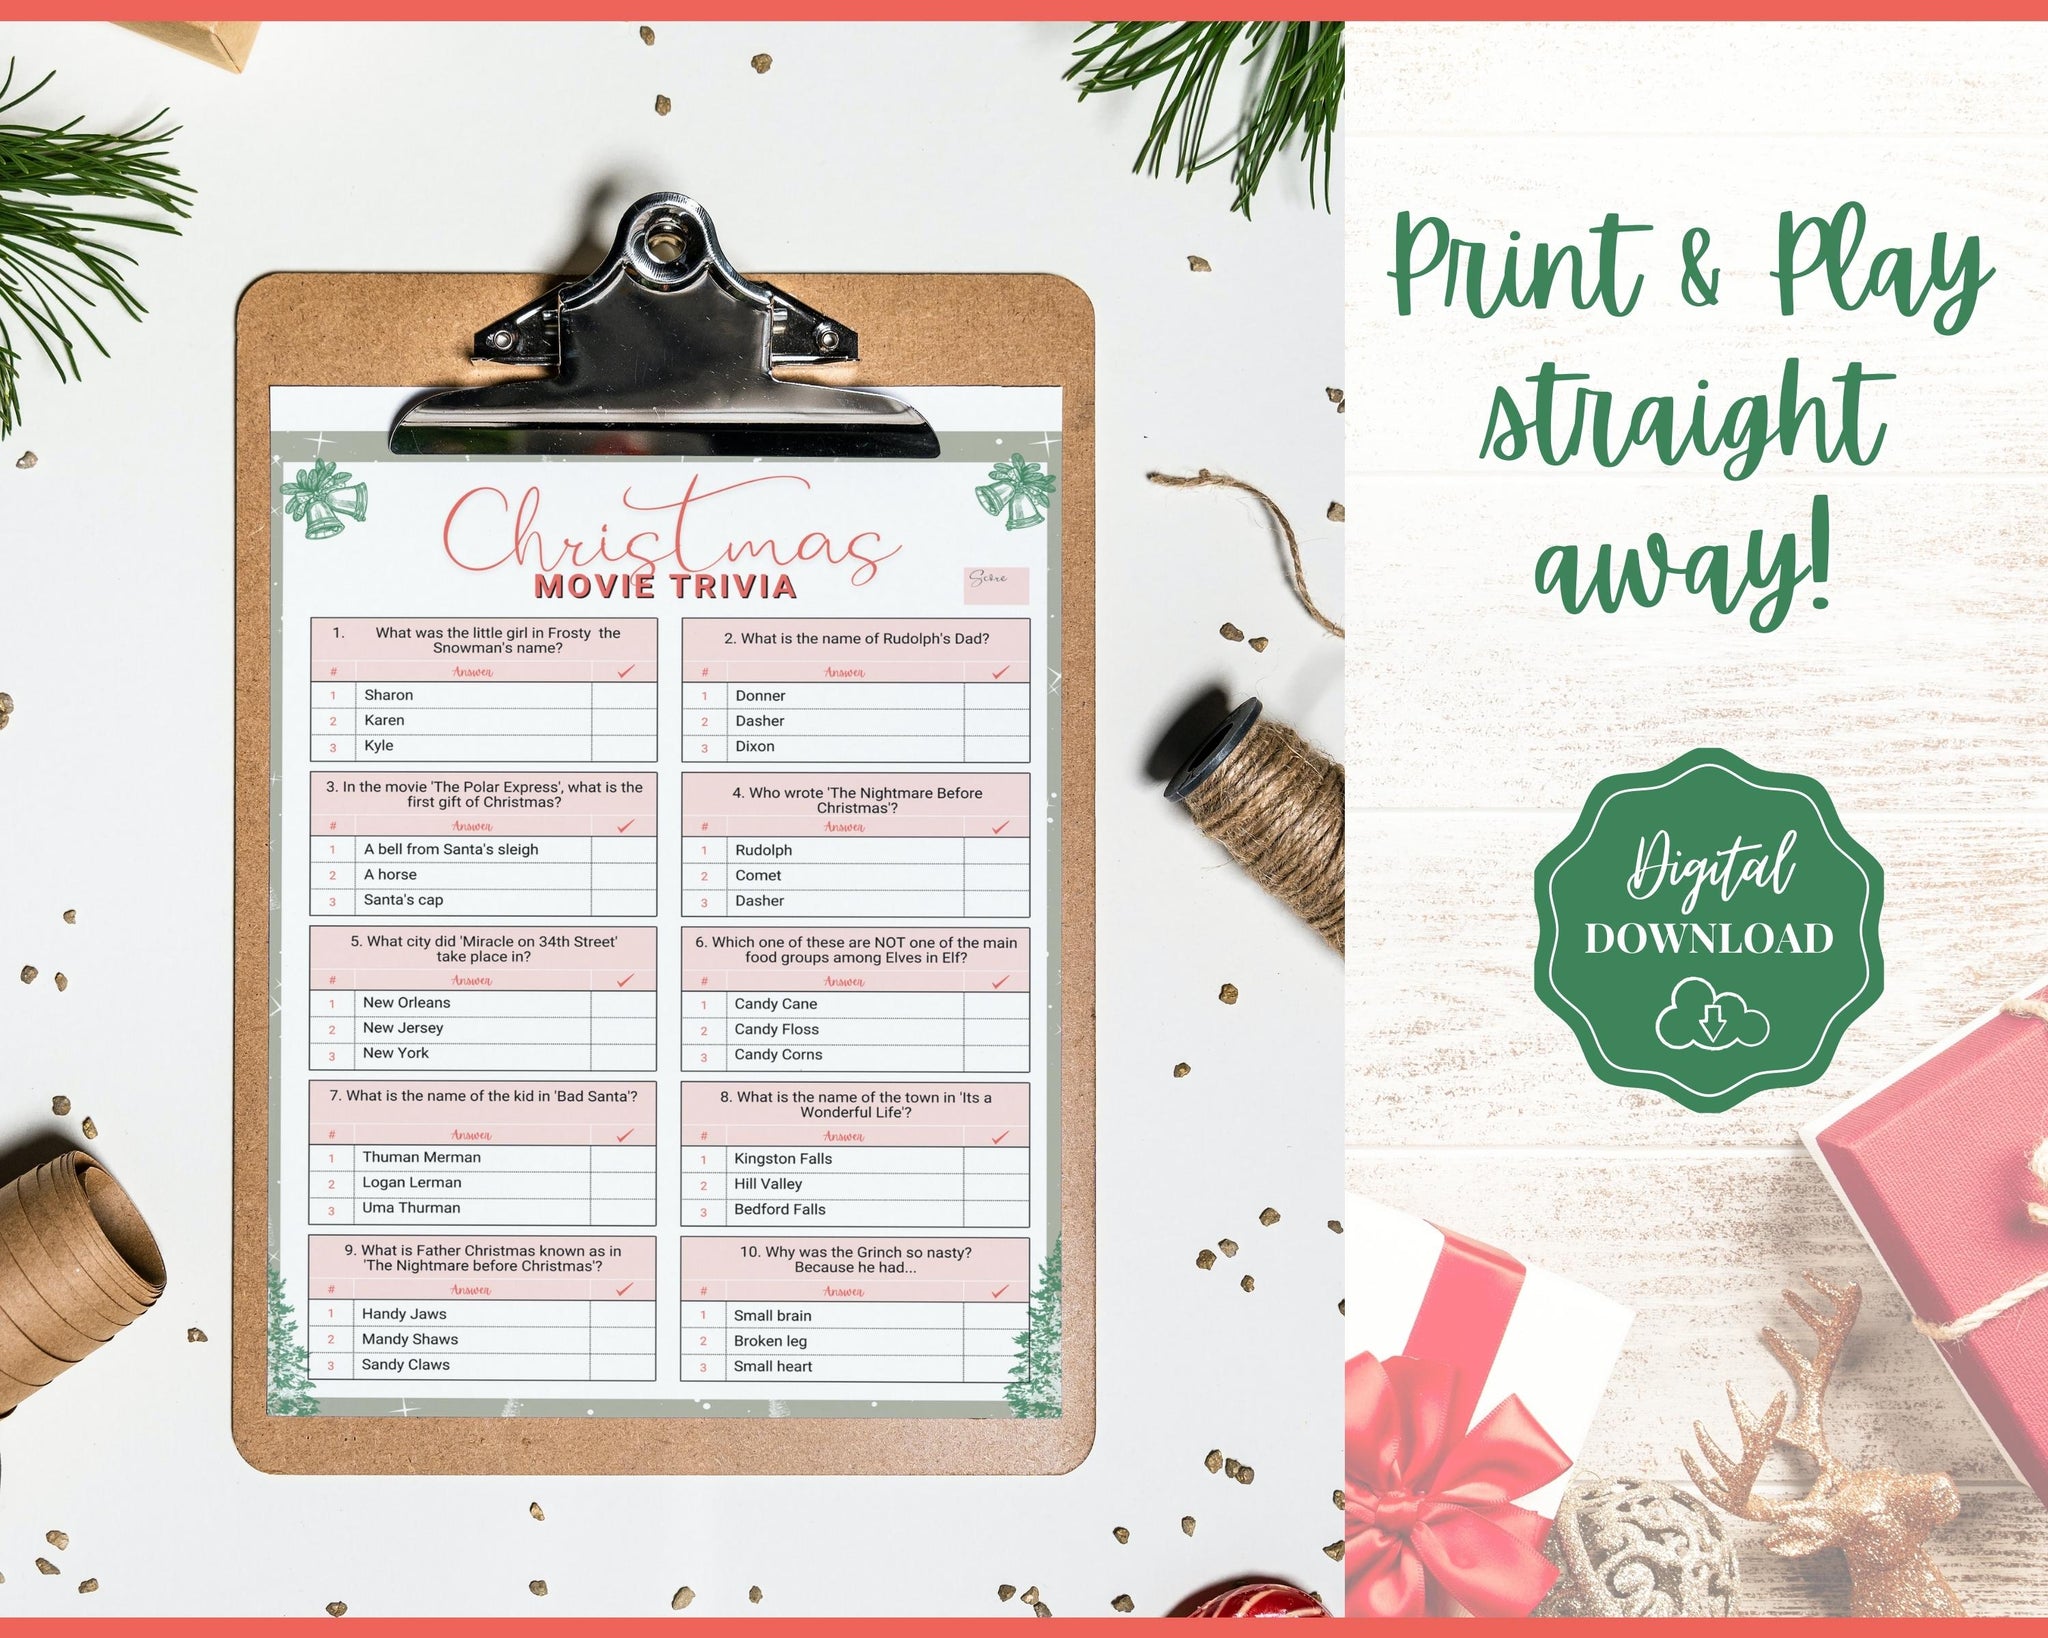 Christmas
MOVIE TRIVIA
Score
1. What was the little girl in Frosty the
Snowman's name?
# Answer ✓
1 Sharon
2 Karen
3 Kyle
2. What is the name of Rudolph's Dad?
# Answer ✓
1 Donner
2 Dasher
3 Dixon
3. In the movie 'The Polar Express', what is the
first gift of Christmas?
# Answer ✓
1 A bell from Santa's sleigh
2 A horse
3 Santa's cap
4. Who wrote 'The Nightmare Before
Christmas'?
# Answer ✓
1 Rudolph
2 Comet
3 Dasher
5. What city did 'Miracle on 34th Street'
take place in?
# Answer ✓
1 New Orleans
2 New Jersey
3 New York
6. Which one of these are NOT one of the main
food groups among Elves in Elf?
# Answer ✓
1 Candy Cane
2 Candy Floss
3 Candy Corns
7. What is the name of the kid in 'Bad Santa'?
# Answer ✓
1 Thuman Merman
2 Logan Lerman
3 Uma Thurman
8. What is the name of the town in 'Its a
Wonderful Life'?
# Answer ✓
1 Kingston Falls
2 Hill Valley
3 Bedford Falls
9. What is Father Christmas known as in
'The Nightmare before Christmas'?
# Answer ✓
1 Handy Jaws
2 Mandy Shaws
3 Sandy Claws
10. Why was the Grinch so nasty?
Because he had...
# Answer ✓
1 Small brain
2 Broken leg
3 Small heart
Print & Play
straight
away!
Digital
DOWNLOAD